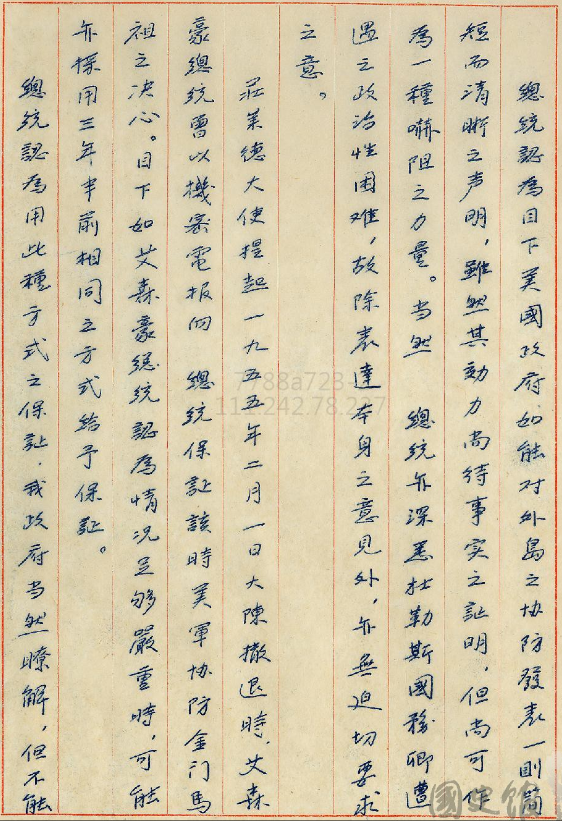 總統認為目下美國政府如能对外島之协防發表一則簡
短而清晰之声明，雖然其効力尚待事实之証明，但尚可作
為一種嚇阻之力量。当然　總統亦深悉杜勒斯國務卿遭
遇之政治性困难，故除表達本身之意見外，亦無迫切要求
之意。
莊萊德大使提起一九五五年二月一日大陳撤退時，艾森
豪總統曾以機密電报向　總統保証該時美軍协防金门馬
祖之决心。目下如艾森豪總統認為情况足够嚴重時，可能
亦採用三年半前相同之方式給予保証。
總統認為用此種方式之保証，我政府当然瞭解，但不能
7788a723-
112.242.78.227
國史館